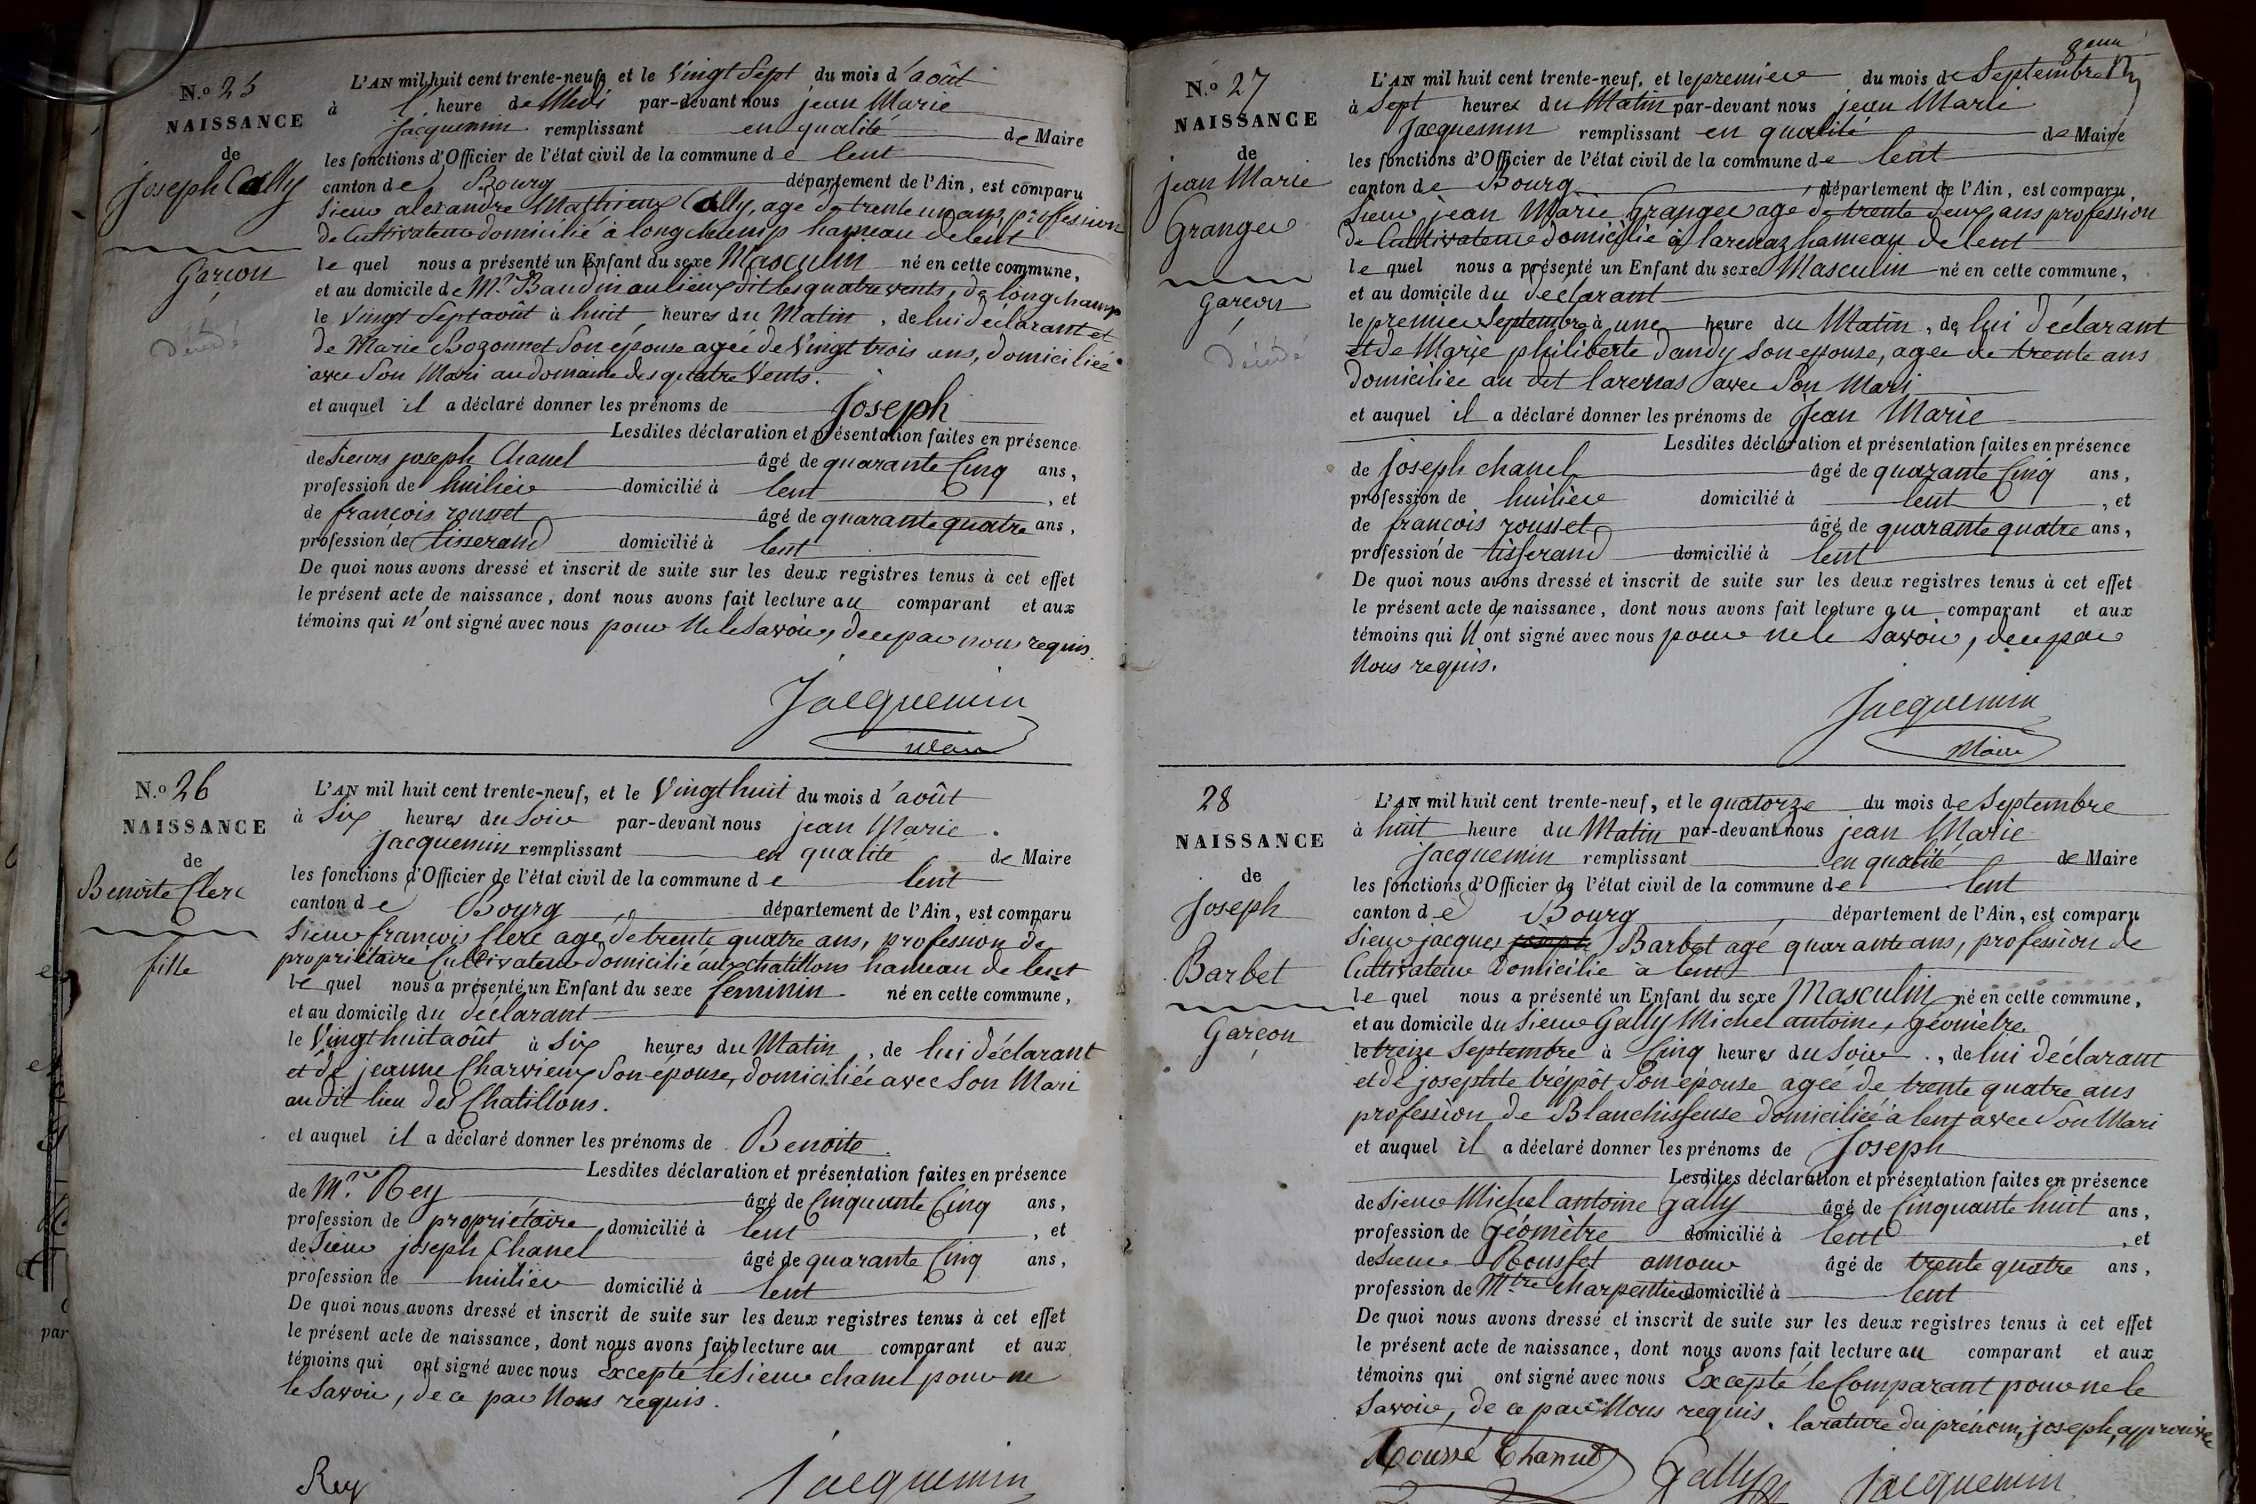 N.º 25
NAISSANCE
de
Joseph Cally
Garçon
décédé
L'AN mil huit cent trente-neuf, et le Vingt Sept du mois d'août
à l' heure de Midi par-devant nous jean Marie
Jacquemin remplissant en qualité de Maire
les fonctions d'Officier de l'état civil de la commune de lent
canton de Bourg département de l'Ain, est comparu
Sieur alexandre Mathieu Cally, age de trente un ans, profession
de Cultivateur domicilié à longchamp hameau de lent
le quel nous a présenté un Enfant du sexe Masculin né en cette commune,
et au domicile de Mr Baudin au lieux dit les quatre vents, de longchamp
le Vingt Sept août à huit heures du Matin, de lui déclarant et
de Marie Bozonnet Son épouse agée de Vingt trois ans, domiciliée
avec Son Mari au domaine des quatre Vents.
et auquel il a déclaré donner les prénoms de Joseph
Lesdites déclaration et présentation faites en présence
de Sieurs joseph Chanel âgé de quarante Cinq ans,
profession de huilier domicilié à lent, et
de françois rousset âgé de quarante quatre ans,
profession de tisserand domicilié à lent
De quoi nous avons dressé et inscrit de suite sur les deux registres tenus à cet effet
le présent acte de naissance, dont nous avons fait lecture au comparant et aux
témoins qui n'ont signé avec nous pour Ne le Savoir, de ce par nous requis.
Jacquemin
Maire
N.º 26
NAISSANCE
de
Benoite Clerc
fille
L'AN mil huit cent trente-neuf, et le Vingt huit du mois d'août
à Six heures du Soir par-devant nous jean Marie
Jacquemin remplissant en qualité de Maire
les fonctions d'Officier de l'état civil de la commune de lent
canton de Bourg département de l'Ain, est comparu
Sieur françois Clerc age de trente quatre ans, profession de
propriétaire Cultivateur domicilié aux chatillons hameau de lent
le quel nous a présenté un Enfant du sexe feminin né en cette commune,
et au domicile du déclarant
le Vingt huit août à Six heures du Matin, de lui déclarant
et de jeanne Charvieux Son epouse, domiciliée avec Son Mari
au dit lieu des Chatillons.
et auquel il a déclaré donner les prénoms de Benoite.
Lesdites déclaration et présentation faites en présence
de Mr. Rey âgé de Cinquante Cinq ans,
profession de propriétaire domicilié à lent, et
de Sieur joseph Chanel âgé de quarante Cinq ans,
profession de huilier domicilié à lent
De quoi nous avons dressé et inscrit de suite sur les deux registres tenus à cet effet
le présent acte de naissance, dont nous avons fait lecture au comparant et aux
témoins qui ont signé avec nous Excepté le Sieur chanel pour ne
le Savoir, de ce par Nous requis.
Rey
Jacquemin
N.º 27
NAISSANCE
de
jean Marie
Granger
garçon
décédé
L'AN mil huit cent trente-neuf, et le premier du mois de Septembre
à Sept heures du Matin par-devant nous jean Marie
Jacquemin remplissant en qualité de Maire
les fonctions d'Officier de l'état civil de la commune de lent
canton de Bourg département de l'Ain, est comparu
Sieur jean Marie Granger agé de trente deux ans profession
de Cultivateur domicilié à larenaz hameau de lent
le quel nous a présenté un Enfant du sexe Masculin né en cette commune,
et au domicile du déclarant
le premier Septembre à une heure du Matin, de lui déclarant
et de Marie philiberte Dandy son epouse, agee de trente ans
domiciliee au dit larenas avec Son Mari
et auquel il a déclaré donner les prénoms de Jean Marie
Lesdites déclaration et présentation faites en présence
de joseph chanel âgé de quarante Cinq ans,
profession de huilier domicilié à lent, et
de françois rousset âgé de quarante quatre ans,
profession de tisserand domicilié à lent
De quoi nous avons dressé et inscrit de suite sur les deux registres tenus à cet effet
le présent acte de naissance, dont nous avons fait lecture au comparant et aux
témoins qui N'ont signé avec nous pour ne le Savoir, de ce par
Nous requis.
Jacquemin
Maire
28
NAISSANCE
de
Joseph
Barbet
Garçon
L'AN mil huit cent trente-neuf, et le quatorze du mois de Septembre
à huit heure du Matin par-devant nous jean Marie
Jacquemin remplissant en qualité de Maire
les fonctions d'Officier de l'état civil de la commune de lent
canton de Bourg département de l'Ain, est comparu
Sieur jacques joseph Barbet agé quarante ans, profession de
Cultivateur domicilié à lent
le quel nous a présenté un Enfant du sexe Masculin né en cette commune,
et au domicile du Sieur Gally Michel antoine, Géomètre
le treize Septembre à Cinq heures du Soir, de lui déclarant
et de josephte trépôt Son épouse agée de trente quatre ans
profession de Blanchisseuse domiciliée à lent avec Son Mari
et auquel il a déclaré donner les prénoms de Joseph
Lesdites déclaration et présentation faites en présence
de Sieur Michel antoine Gally âgé de Cinquante huit ans,
profession de Géomètre domicilié à lent, et
de Sieur Rousset amour âgé de trente quatre ans,
profession de Mtre Charpentier domicilié à lent
De quoi nous avons dressé et inscrit de suite sur les deux registres tenus à cet effet
le présent acte de naissance, dont nous avons fait lecture au comparant et aux
témoins qui ont signé avec nous Excepté le Comparant pour ne le
Savoir, de ce par Nous requis. la rature du prénom, joseph, approuvée
Gally
Jacquemin